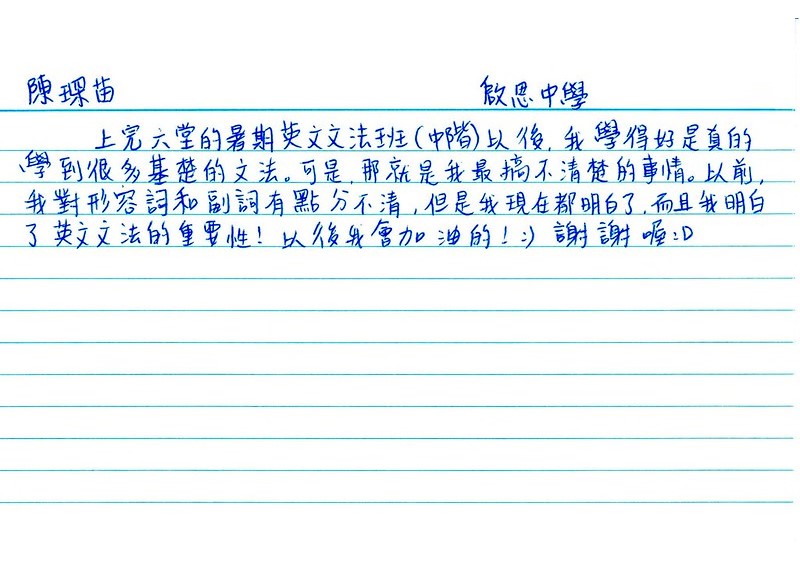 陳琛苗 啟思中學
上完六堂的暑期英文文法班(中階)以後,我學得好是真的
學到很多基楚的文法。可是,那就是我最搞不清楚的事情。以前,
我對形容詞和副詞有點分不清,但是我現在都明白了,而且我明白
了英文文法的重要性!以後我會加油的!:) 謝謝喔:D